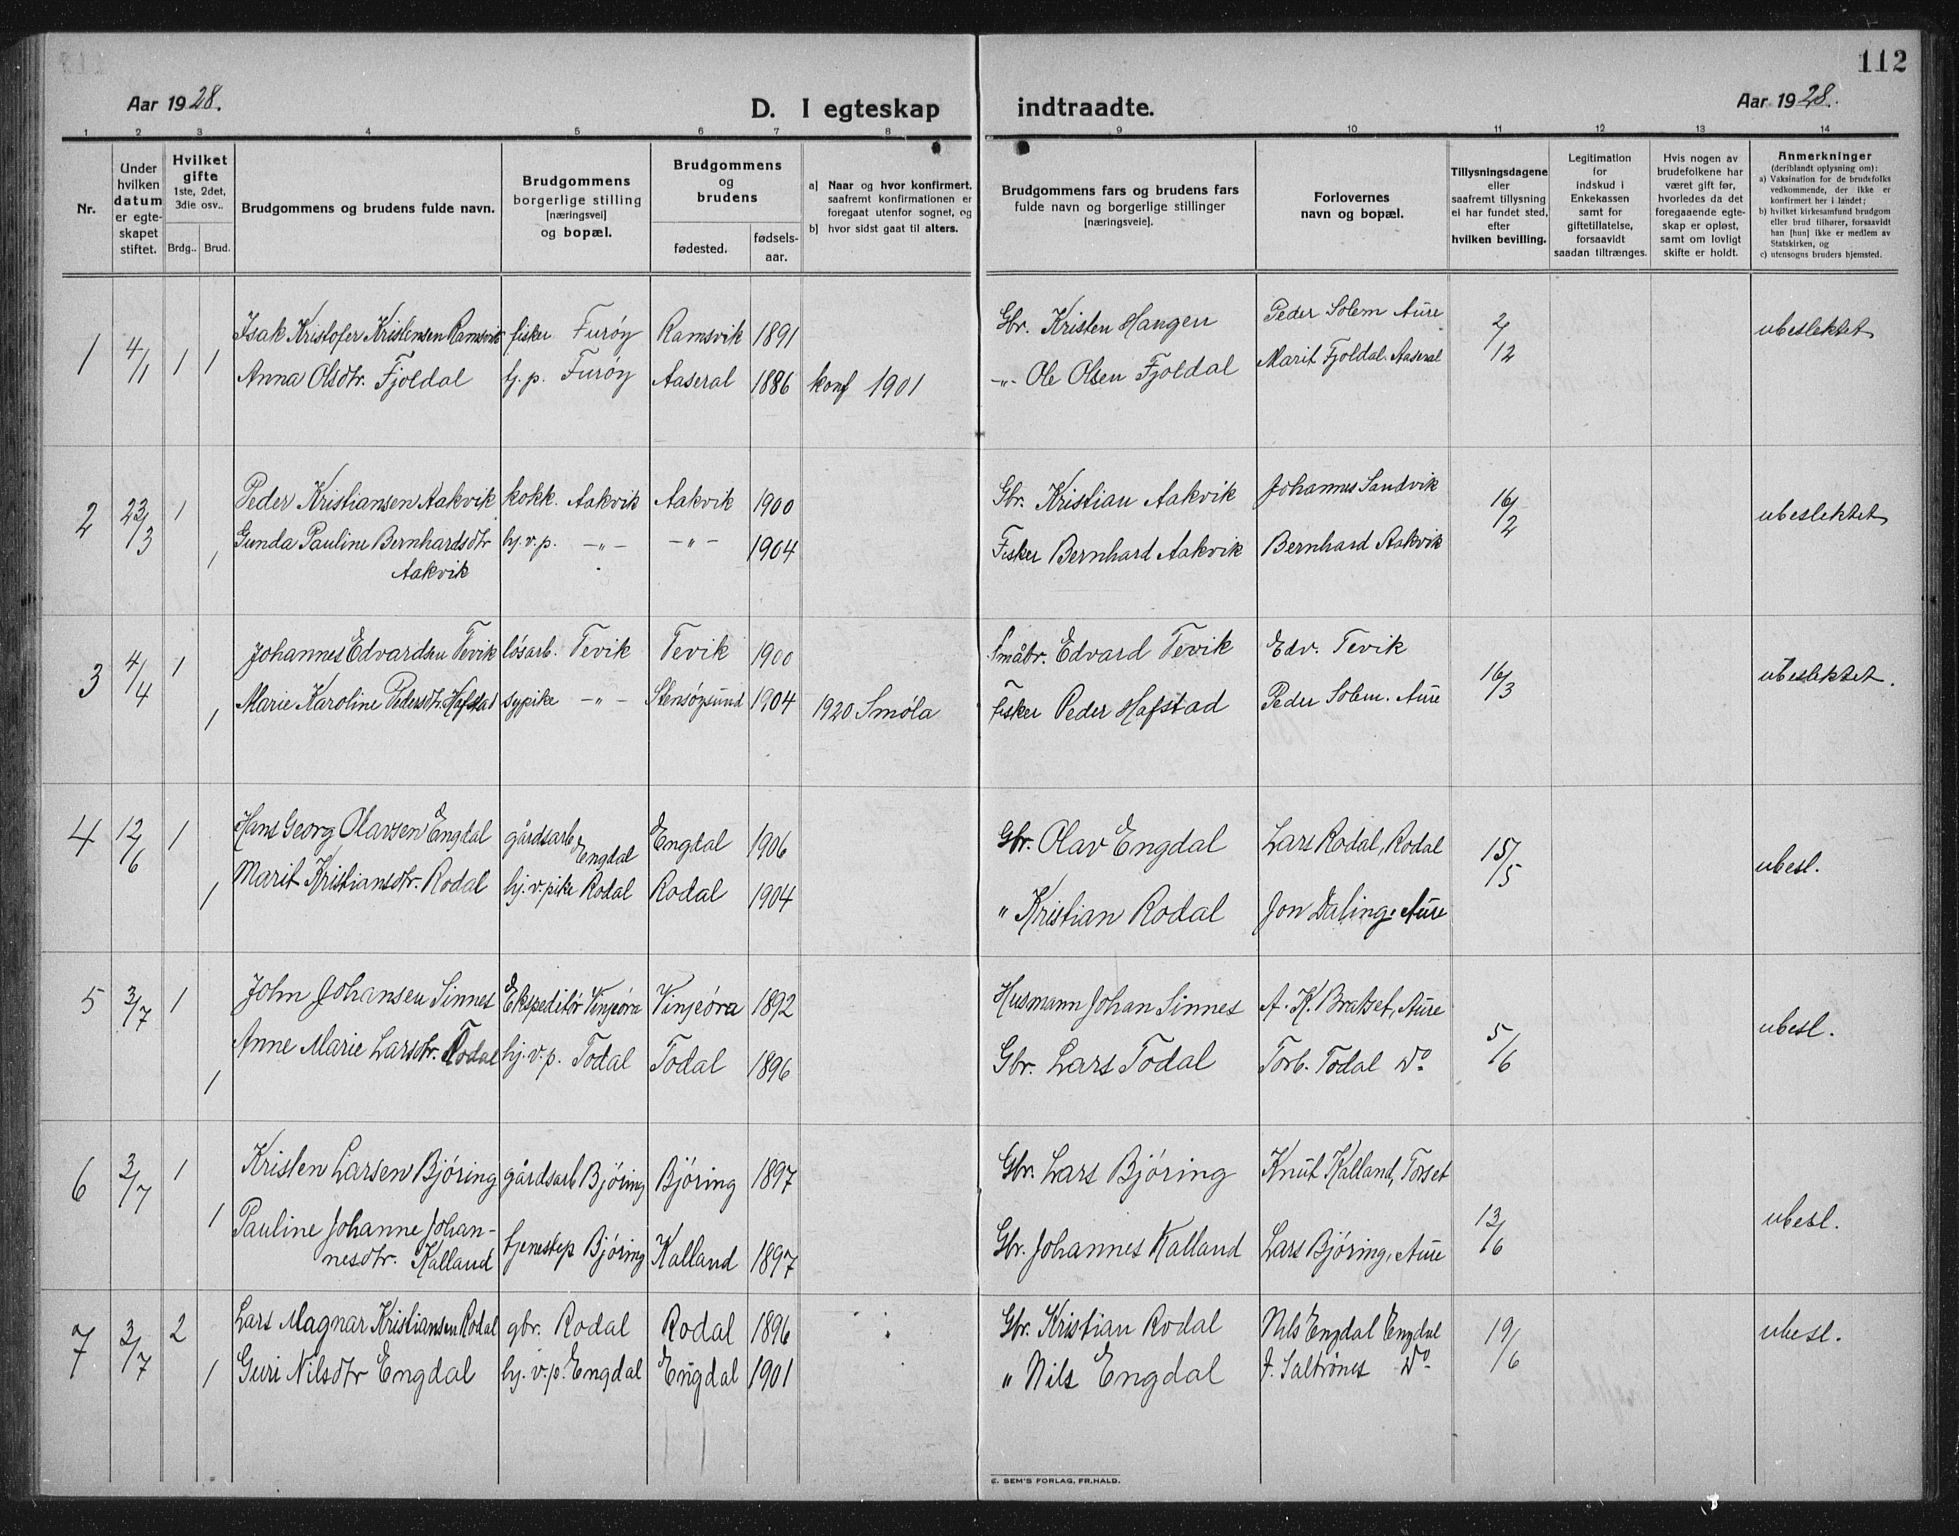 112
Aar 1928.
D. I egteskap indtraadte.
Aar 1928.
1 2 3 4 5 6 7 8 9 10 11 12 13 14
Nr.
Under hvilken datum er egteskapet stiftet.
Hvilket gifte 1ste, 2det, 3die osv..
Brdg.. Brud.
Brudgommens og brudens fulde navn.
Brudgommens borgerlige stilling [næringsvei] og bopæl.
Brudgommens og brudens
fødested. fødselsaar.
a) Naar og hvor konfirmert, saafremt konfirmationen er foregaat utenfor sognet, og
b) hvor sidst gaat til alters.
Brudgommens fars og brudens fars fulde navn og borgerlige stillinger [næringsveie].
Forlovernes navn og bopæl.
Tillysningsdagene eller saafremt tillysning ei har fundet sted, efter hvilken bevilling.
Legitimation for indskud i Enkekassen samt for giftetillatelse, forsaavidt saadan tiltrænges.
Hvis nogen av brudefolkene har været gift før, hvorledes da det foregaaende egteskap er opløst, samt om lovligt skifte er holdt.
Anmerkninger
(deriblandt oplysning om):
a) Vaksination for de brudefolks vedkommende, der ikke er konfirmert her i landet;
b) hvilket kirkesamfund brudgom eller brud tilhører, forsaavidt han [hun] ikke er medlem av Statskirken, og
c) utensogns bruders hjemsted.
1 4/1 1 Isak Kristofer Kristensen Ramsvik fisker Furøy Ramsvik 1891 Gbr. Kristen Haugen Peder Solem Aure 2/12 ubeslektet
1 Anna Olsdtr. Fjoldal tj. p. Furøy Aaseral 1886 konf 1901 -"- Ole Olsen Fjoldal Marit Fjoldal. Aaseral
2 23/3 1 Peder Kristiansen Aakvik kokk. Aakvik Aakvik 1900 Gbr. Kristian Aakvik Johannes Sandvik 16/2 ubeslektet
1 Gunda Pauline Bernhardsdtr hj. v. p. -"- -"- 1904 Fisker Bernhard Aakvik Bernhard Aakvik
Aakvik
3 4/4 1 Johannes Edvardsen Tevik løsarb. Tevik Tevik 1900 Småbr. Edvard Tevik Edv. Tevik 16/3 ubeslektet.
1 Marie Karoline Pedersdtr. Hafstad sypike -"- Stensøysund 1904 1920 Smøla fisker Peder Hafstad Peder Solem. Aure
4 12/6 1 Hans Georg Olavsen Engdal gårdsarb Engdal Engdal 1906 Gbr. Olav Engdal Lars Rodal, Rodal 15/5 ubesl.
1 Marit Kristiansdtr. Rodal hj. v. pike Rodal Rodal 1904 " Kristian Rodal Jon Daling. Aure
5 3/7 1 John Johansen Sinnes Ekspeditør Vinjeøra Vinjeøra 1892 Husmann Johan Sinnes A. K. Bratset, Aure 5/6 ubesl.
1 Anne Marie Larsdtr. Todal hj. v. p. Todal Todal 1896 Gbr. Lars Todal Torb. Todal Do
6 3/7 1 Kristen Larsen Bjøring gårdsarb Bjøring Bjøring 1897 Gbr. Lars Bjøring Knut Kalland, Torset 13/6 ubesl.
1 Pauline Johanne Johan-
nesdtr. Kalland tjenestep Bjøring Kalland 1897 Gbr. Johannes Kalland Lars Bjøring, Aure
7 3/7 2 Lars Magnar Kristiansen Rodal gbr. Rodal Rodal 1896 Gbr. Kristian Rodal Nils Engdal Engdal 19/6 ubesl.
1 Guri Nilsdtr Engdal hj. v. p. Engdal Engdal 1901 " Nils Engdal J. Saltrönes Do
E. SEM'S FORLAG, FR.HALD.